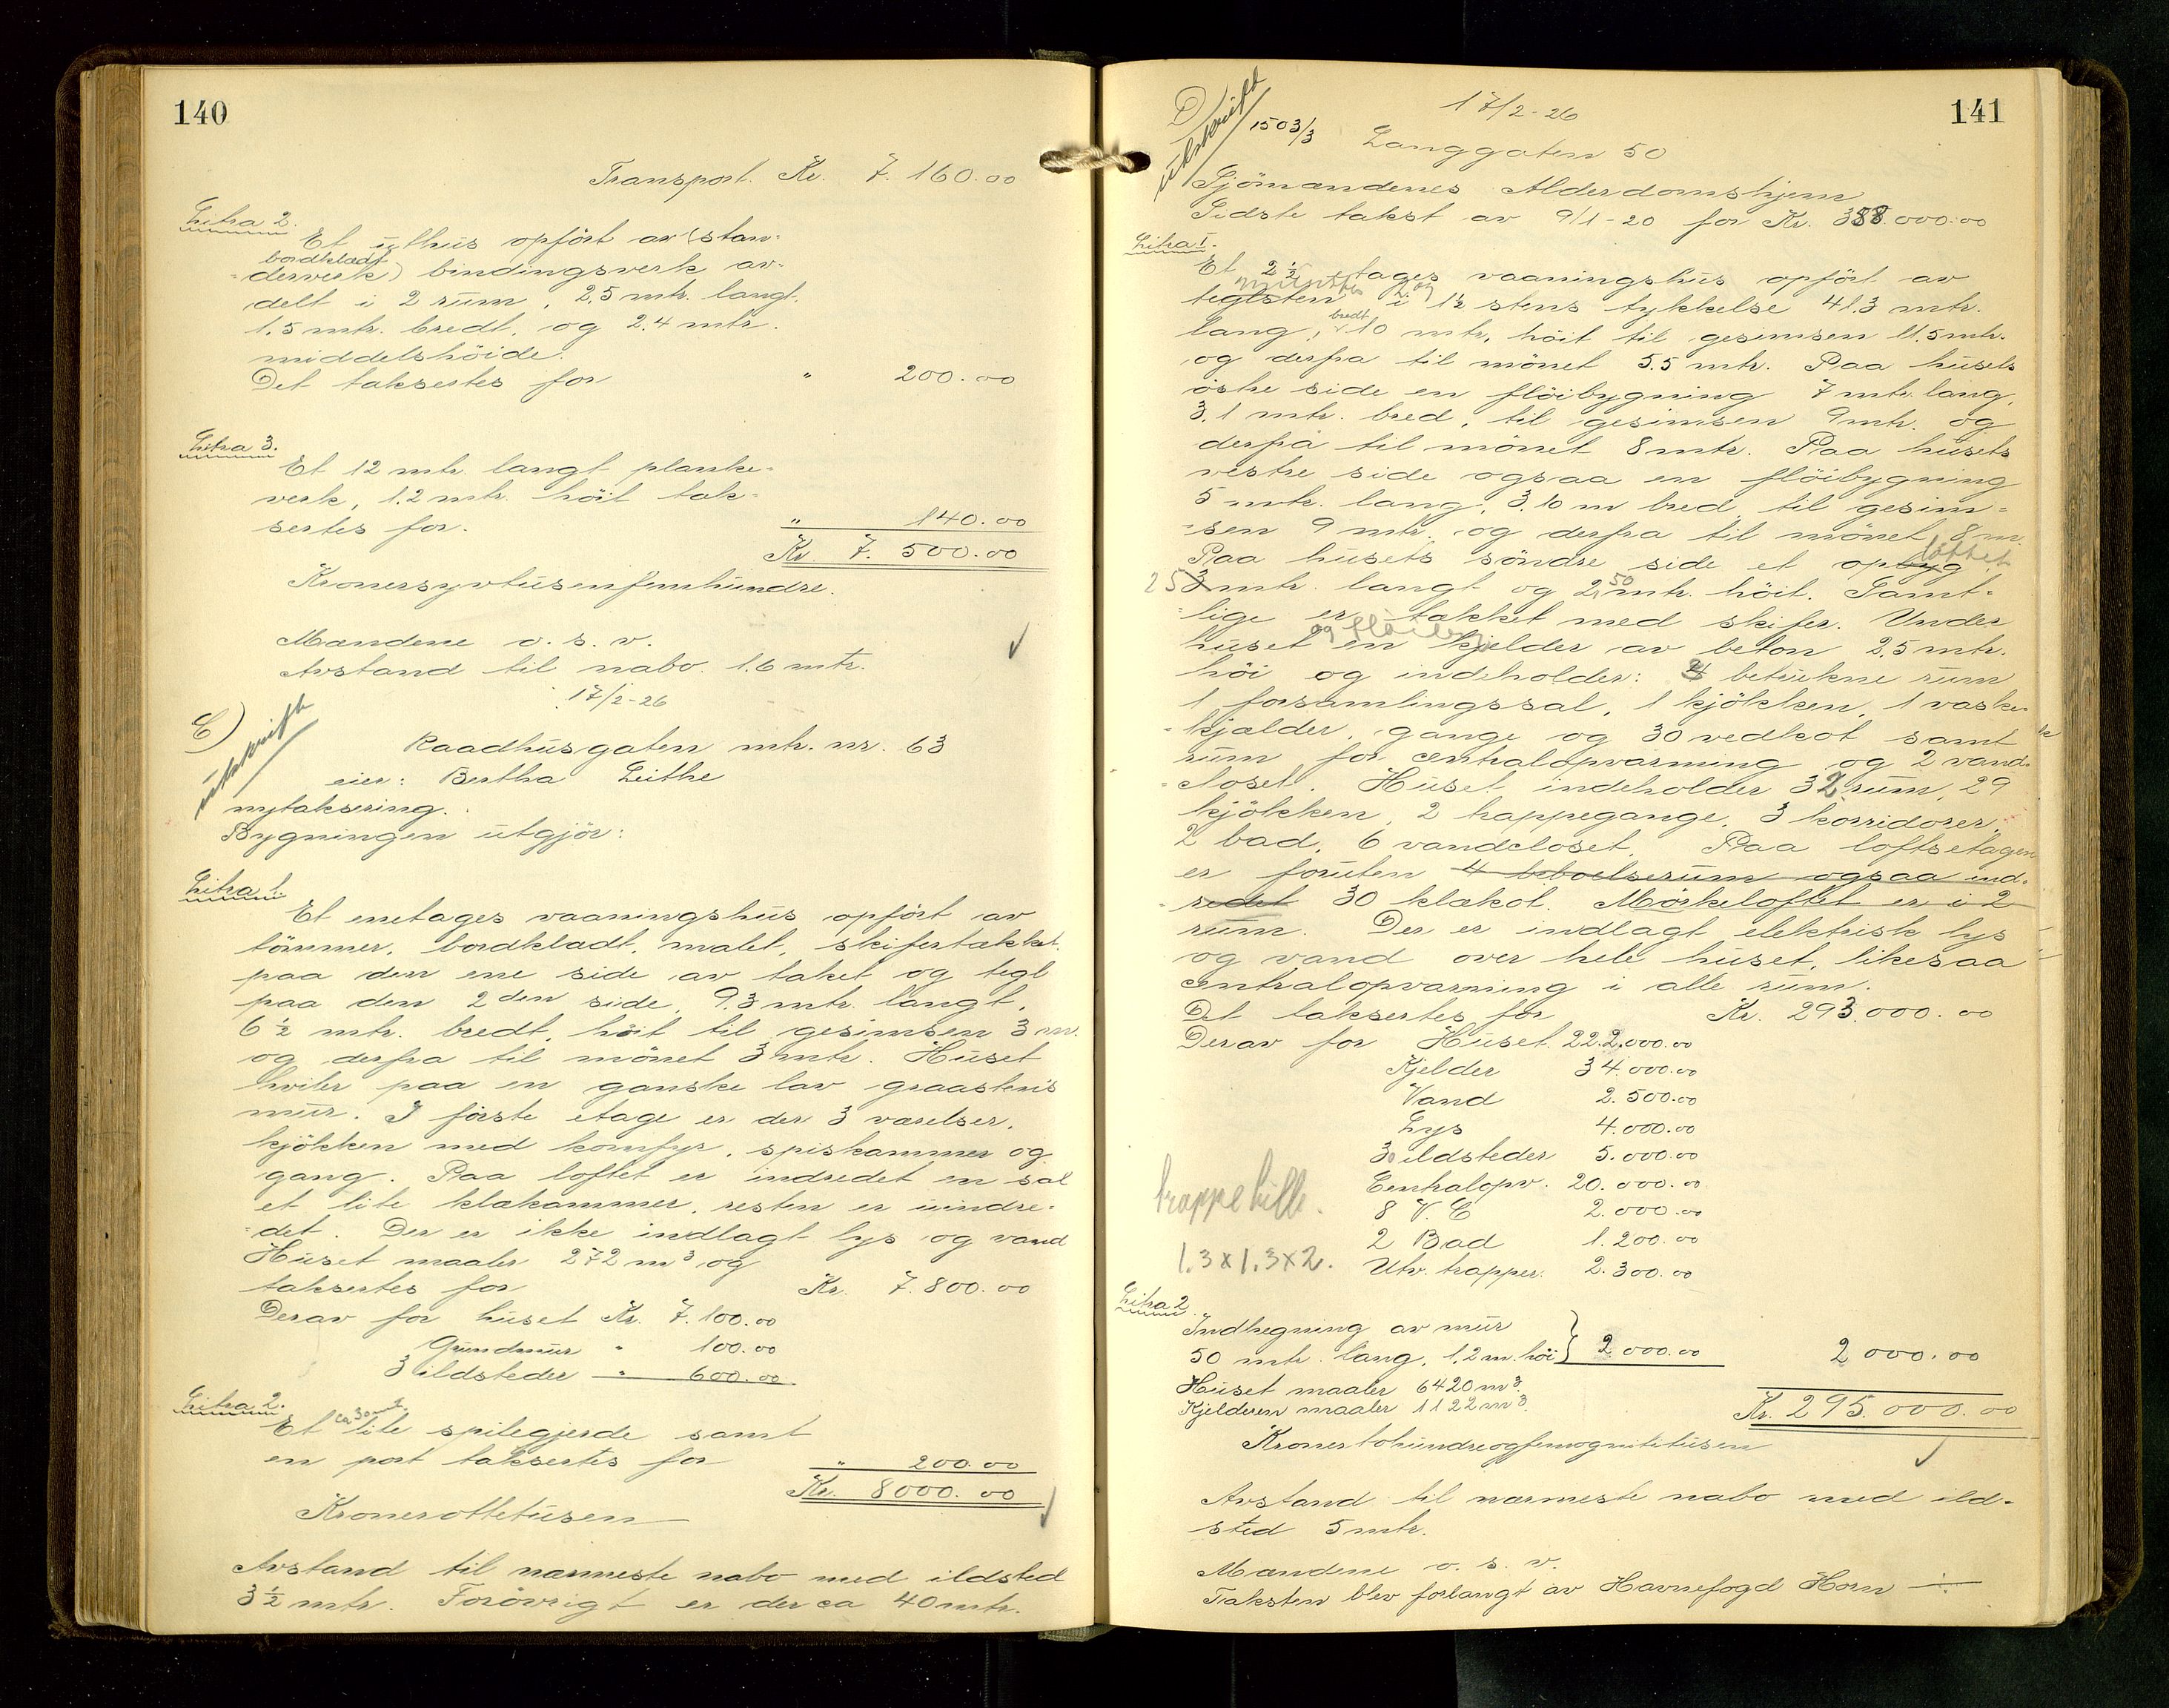 140
Transport. Kr. 7.160.00
Litra 2.
Et uthus opført av (sten-
bordkladt
=derverk) bindingsverk av-
delt i 2 rum, 2,5 mtr. langt.
1.5 mtr. bredt, og 2.4 mtr.
middelshöide.
Det taksertes for " 200.00
Litra 3.
Et 12 mtr. langt planke-
verk, 1.2 mtr. höit tak-
sertes for. " 140.00
Kr. 7.500.00
Kronersyvtusenfemhundre.
Mændene o. s. v.
Avstand til nabo. 1.6 mtr.
17/2-26
E)
utskrift
Raadhusgaten mtr. nr. 63
eier: Bertha Leithe
nytaksering.
Bygningen utgjör:
Litra 1.
Et enetages vaaningshus opfört av
tömmer, bordkladt, malet, skifertækket
paa den ene side av taket og tegl
paa den 2den side, 9.3 mtr. langt,
6 1/2 mtr. bredt, höit til gesimsen 3 m.
og derfra til mönet 3 mtr. Huset
hviler paa en ganske lav graastens
mur. I förste etage er der 3 værelser,
kjökken med komfyr, spiskammer og
gang. Paa loftet er indredet en sal
et lite klækammer, resten er uindre-
-det. Der er ikke indlagt lys og vand
Huset maaler 272 m3 og
taksertes for Kr. 7.800.00
Derav for huset Kr. 7.100.00
Grundmur " 100.00
3 ildsteder " 600.00
Litra 2.
ca 30 mt.
Et lite spilegjerde samt
en port taksertes for " 200.00
Kr. 8000.00
Kronerottetusen
Avstand til nærmeste nabo med ildsted
3 1/2 mtr. Forövrigt er der ca 40 mtr.
141
D)
utskrift
17/2-26
1503/3 Langgaten 50
Sjömændenes Alderdomshjem
Sidste takst av 9/1-20 for Kr. 388.000.00
Litra I.
Et 2 1/2 etages vaaningshus opfört av
teglsten i 1 1/2 stens tykkelse 41.3 mtr.
bredt
lang, 10 mtr, höit til gesimsen 11.5 mtr.
og derfra til mönet 5.5 mtr. Paa husets
östre side en flöibygning 7 mtr. lang,
3.1 mtr. bred, til gesimsen 9 mtr. og
derfra til mönet 8 mtr. Paa husets
vestre side ogsaa en flöibygning
5 mtr. lang, 3.10 m bred, til gesim-
-sen 9 mtr. og derfra til mönet 8 m.
löftet
Paa husets söndre side et opbyg
25 mtr. langt og 2,50 mtr. höit. Samt-
-lige er tækket med skifer. Under
og flöiene
huset en kjelder av beton 2,5 mtr.
höi og indeholder: 4 betrukne rum
1 forsamlingssal, 1 kjökken, 1 vaske-
-kjælder, gange og 30 vedkot samt
rum for centralopvarming og 2 vand-
-closet. Huset indeholder 32 rum, 29
kjökken, 2 trappegange, 3 korridorer,
2 bad, 6 vandcloset. Paa loftsetagen
er foruten 4 beboelserum ogsaa ind-
-redet 30 klækot. Mörkeloftet er i 2
rum. Der er indlagt elektrisk lys
og vand over hele huset, likesaa
centralopvarming i alle rum.
Det taksertes for Kr. 293.000.00
Derav for Huset 222.000.00
Kjelder 34.000.00
Vand 2.500.00
Lys 4.000.00
30 ildsteder 5.000.00
Centralopv. 20.000.00
8 V.C 2.000.00
2 Bad 1.200.00
Utv. trapper. 2.300.00
trappehille.
1.3 x 1.3 x 2.
Litra 2.
Indhegning av mur
50 mtr. lang, 1,2 m. höi } 2 000.00 2 000.00
Huset maaler 6420 m3.
Kjelderen maaler 1122 m3.
Kr. 295.000.00
Kronertohundreogfemognittitusen
Avstand til nærmeste nabo med ild-
sted 5 mtr.
Mændene o. s. v.
Taksten blev forlangt av Havnefogd Horn